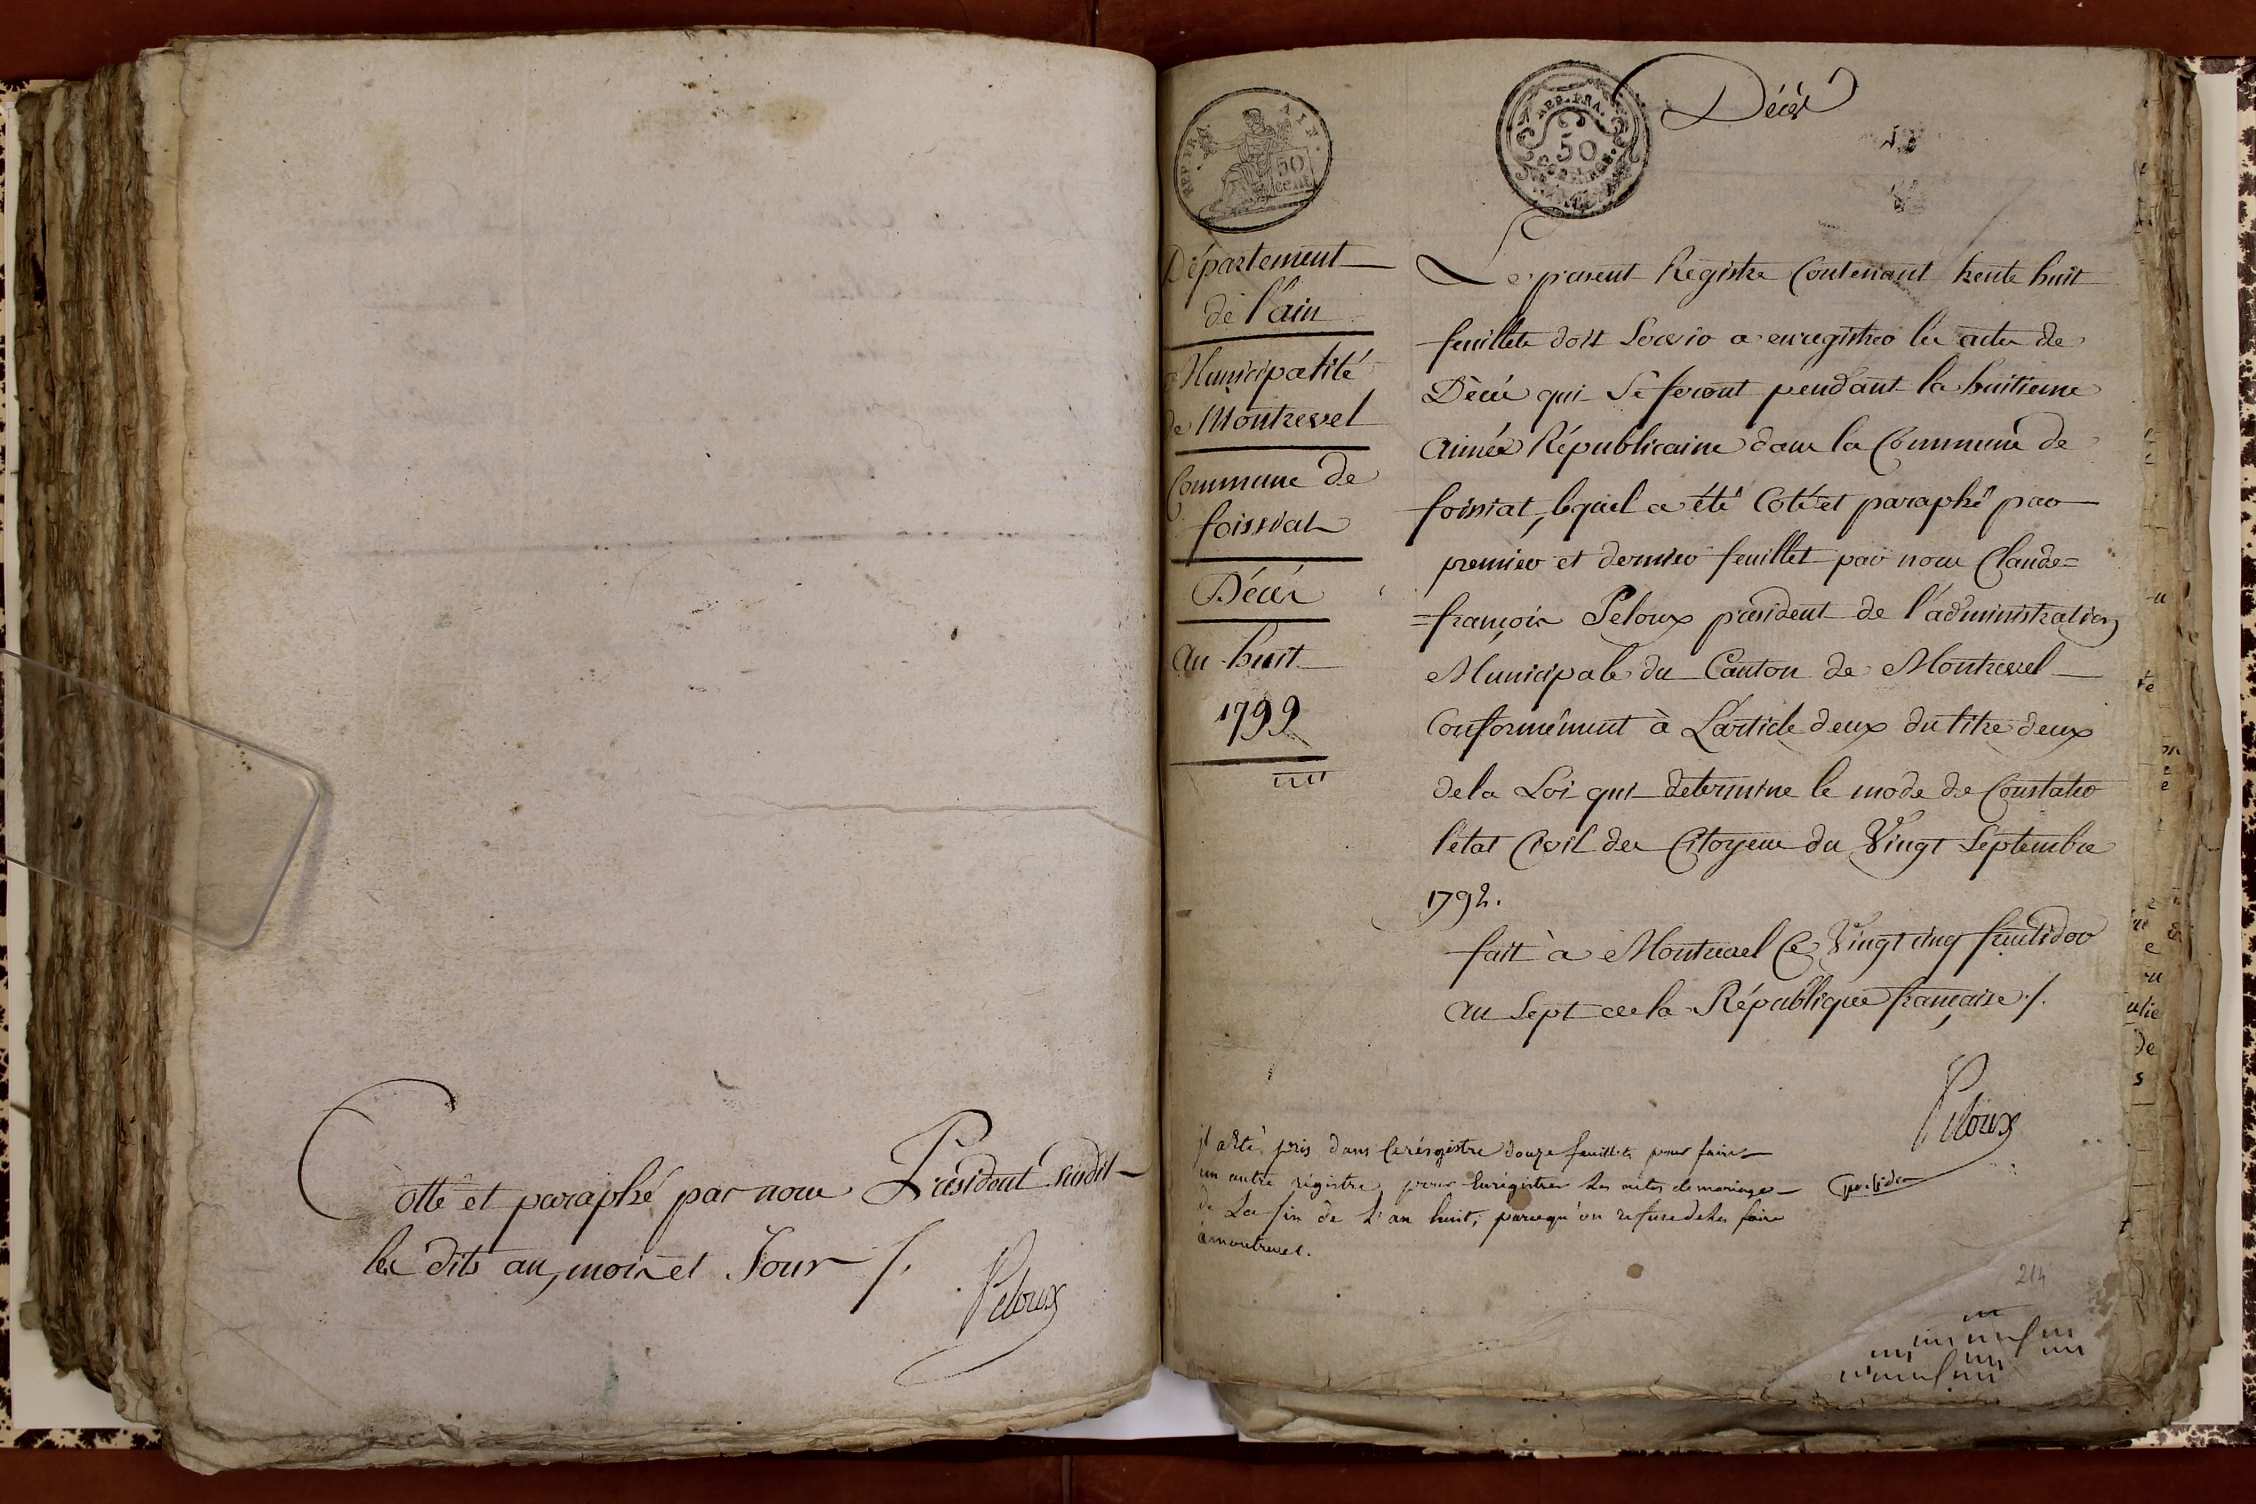 Cotté et paraphé par nous Président susdit
les dits an, mois et Jour /.
Peloux
REP. FRA.
50
cent
REP. FRA.
50
Décès
Département
de l'ain
Municipalité
de Montrevel
Commune de
foissiat
Décès
an huit
1799
Le présent Registre Contenant trente huit
feuillets doit Servir a enregistrer les actes de
Décès qui Se feront pendant la huitieme
année Républicaine dans la Commune de
foissiat, lequel a été Coté et paraphé par
premier et dernier feuillet par nous Claude=
=françois Peloux président de l'administration
Municipale du Canton de Montrevel
Conformément à L'article deux du titre deux
de la Loi qui determine le mode de Constater
l'état Civil des Citoyens du Vingt Septembre
1792.
fait à Montrevel Ce Vingt cinq fructidor
an Sept de la République française /.
Peloux
président
il a été pris dans Ce régistre douze feuillets pour faire
un autre régistre pour Enrégistrer Les actes de mariage
de La fin de L'an huit, parcequ'on refuse de les faire
à montrevel.
214